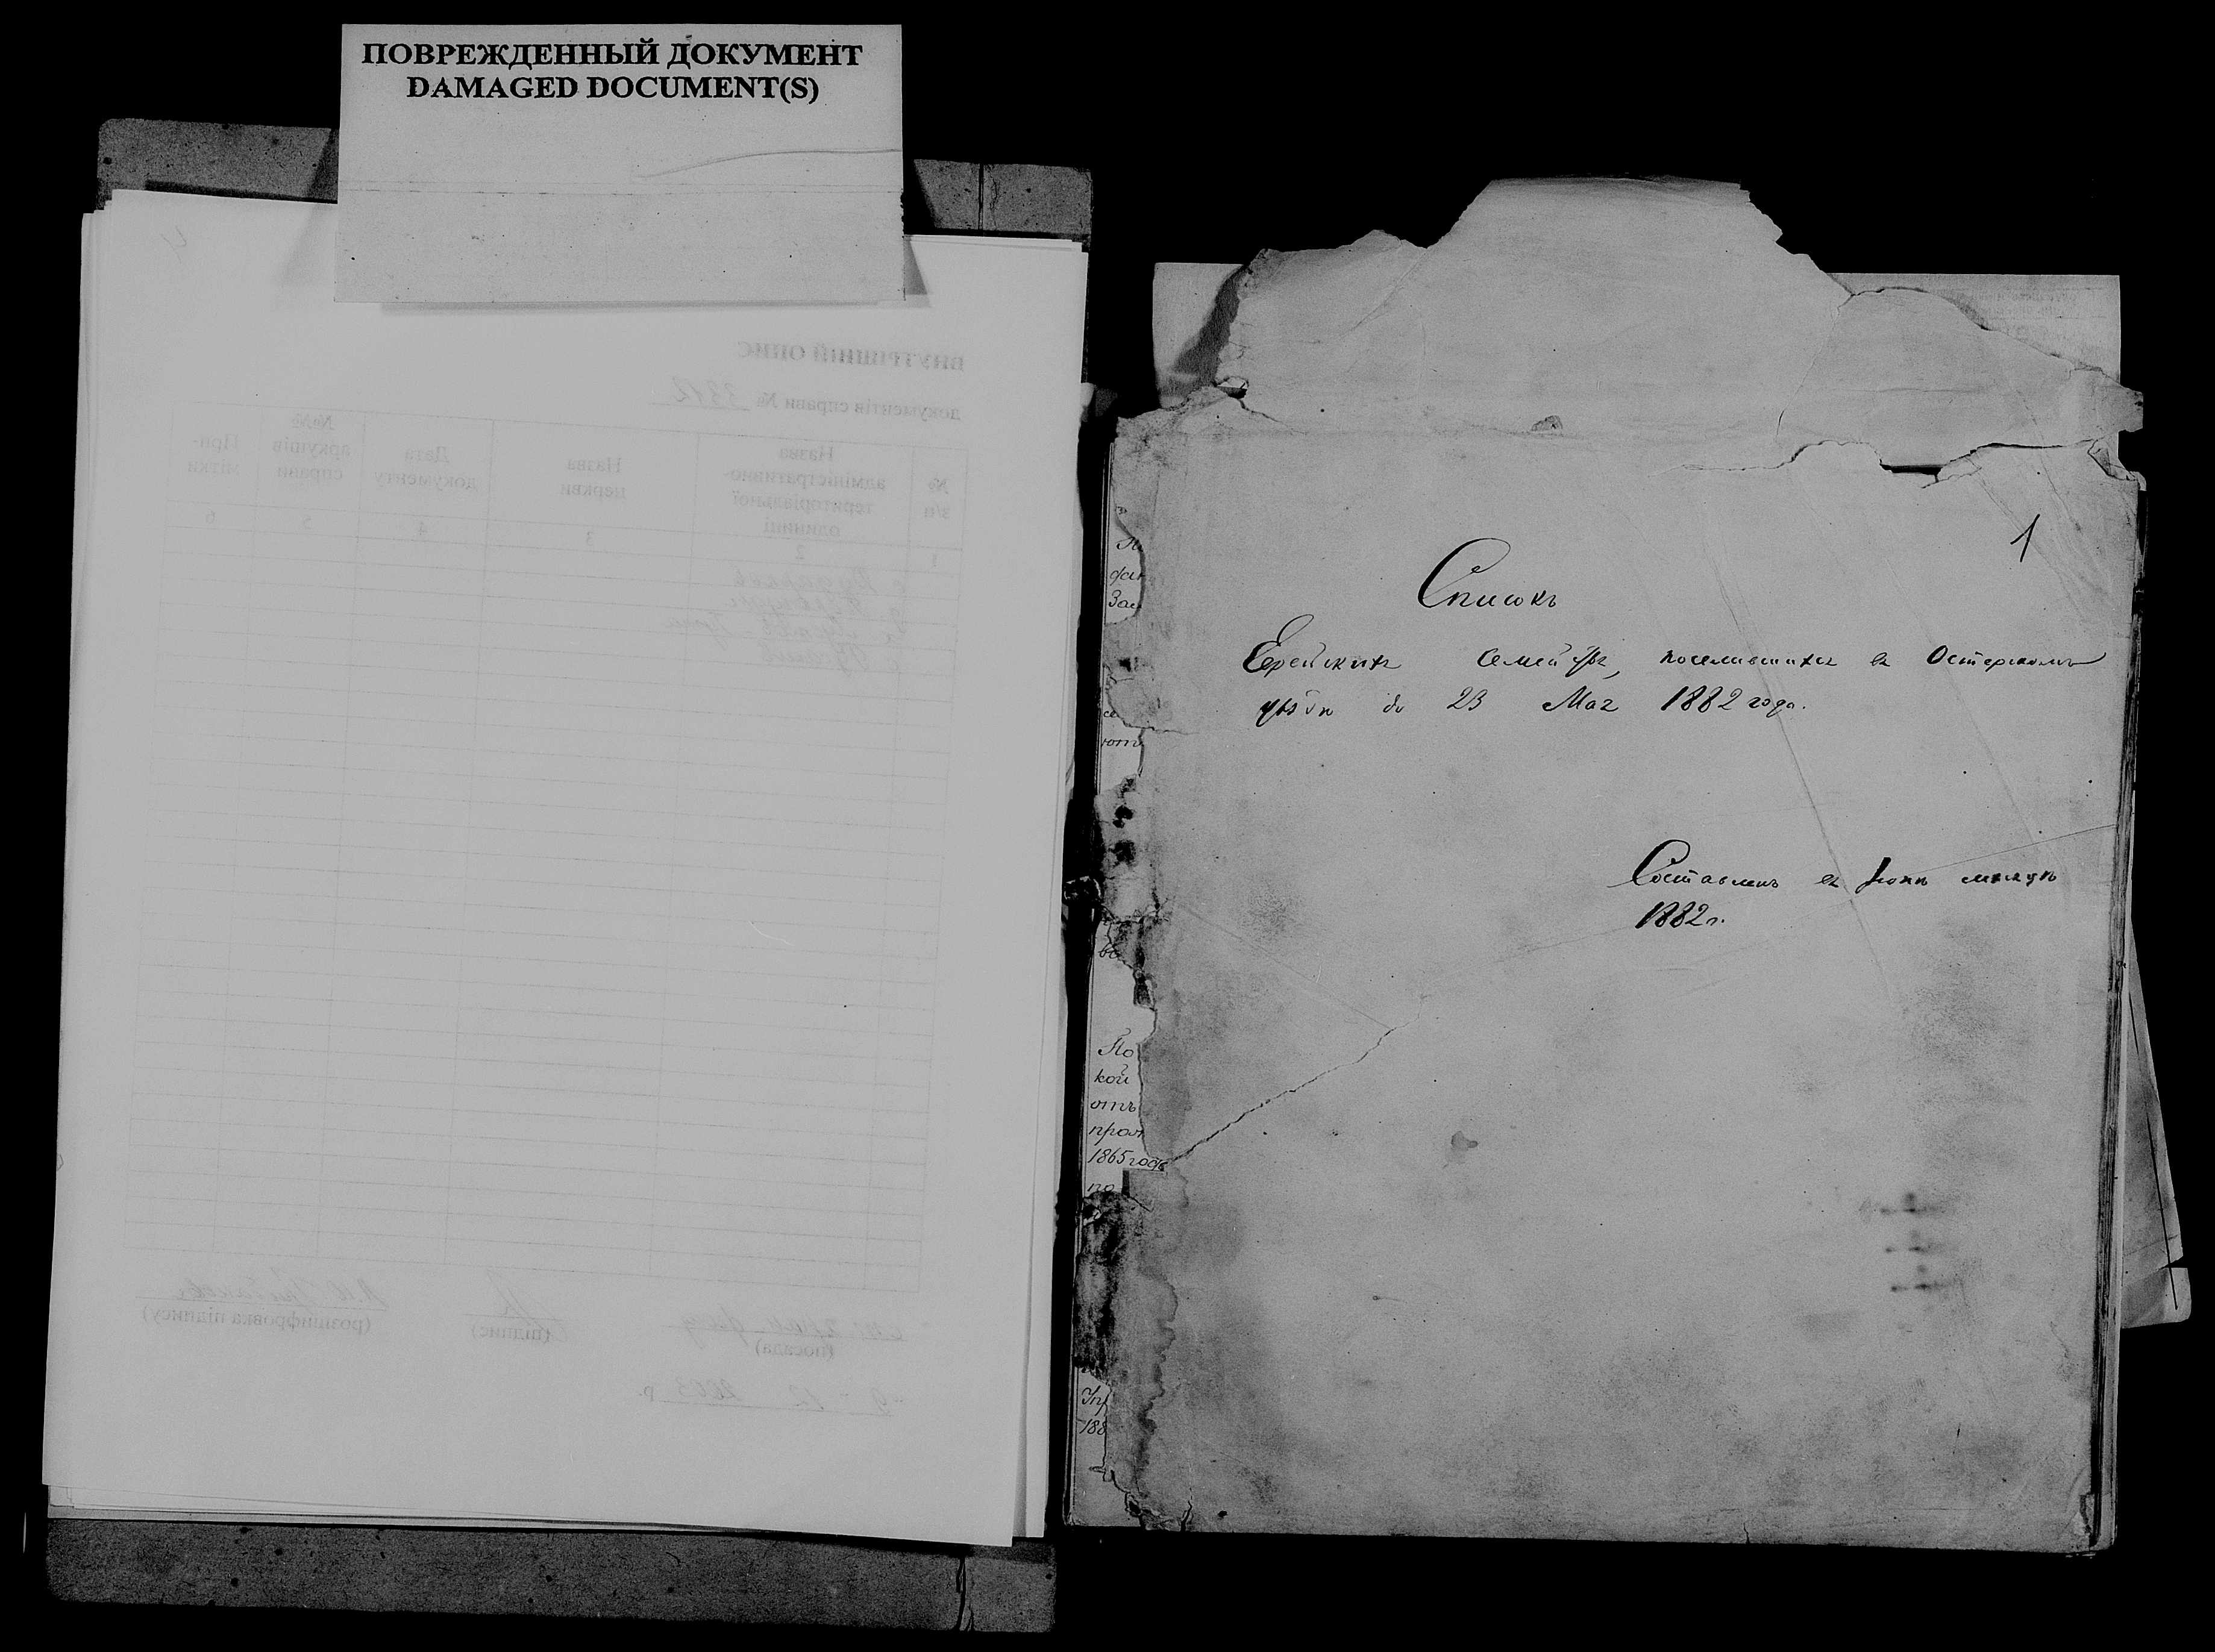 ПОВРЕЖДЕННЫЙ ДОКУМЕНТ
DAMAGED DOCUMENT(S)
ВНУТРІШНІЙ ОПИС
документів справи № 3312
№ з/п
Назва адміністративно-територіальної одиниці
Назва церкви
Дата документу
№№ аркушів справи
Примітки
1 2 3 4 5 6
(посада)
(підпис)
(розшифровка підпису)
2003 р.
1
Списокъ
Еврейскихъ семействъ, поселившихся въ Остерскомъ
уѣздѣ до 23 Мая 1882 года.
Составленъ въ Іюнѣ мѣсяцѣ
1882 г.
За
По
кой
отъ
пром
1865 года
по
188